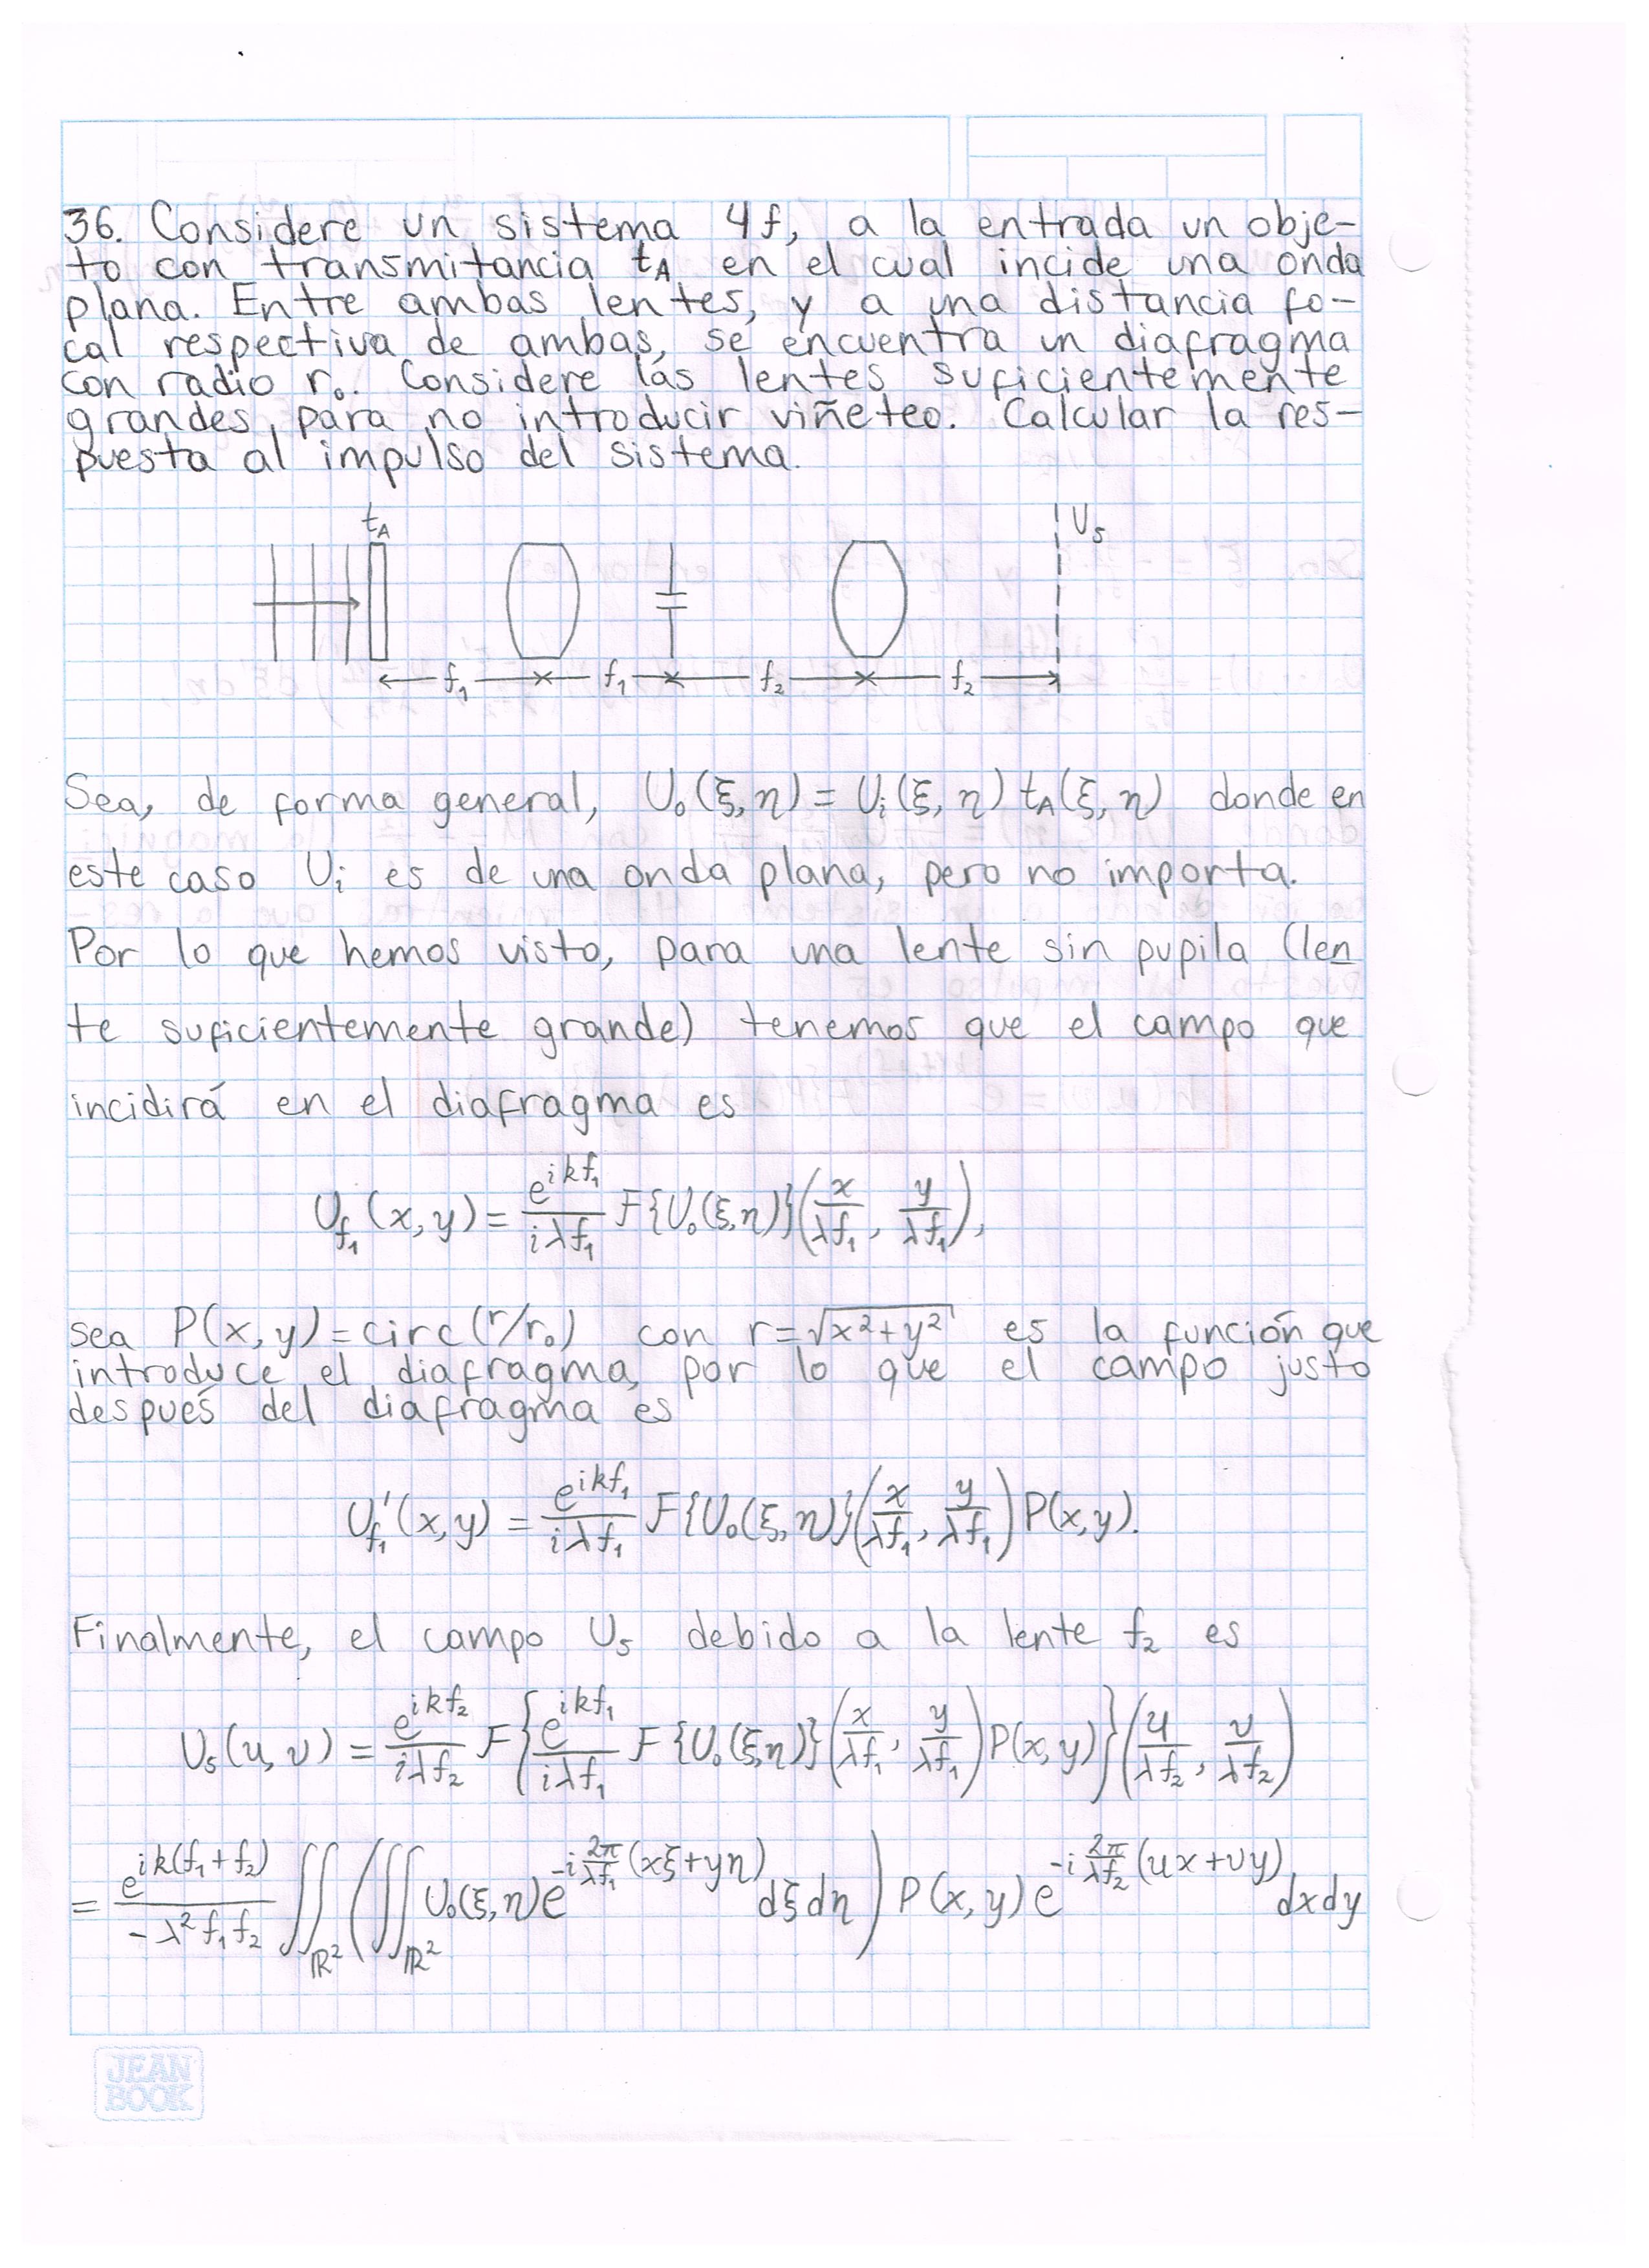 36. Considere un sistema 4f, a la entrada un obje-
to con transmitancia t_A en el cual incide una onda
plana. Entre ambas lentes, y a una distancia fo-
cal respectiva de ambas, se encuentra un diafragma
con radio r₀. Considere las lentes suficientemente
grandes para no introducir viñeteo. Calcular la res-
puesta al impulso del sistema.
t_A
U_s
f₁ f₁ f₂ f₂
Sea, de forma general, U₀(ξ,η) = U_i(ξ,η) t_A(ξ,η) donde en
este caso U_i es de una onda plana, pero no importa.
Por lo que hemos visto, para una lente sin pupila (len
te suficientemente grande) tenemos que el campo que
incidirá en el diafragma es
U_{f₁}(x,y) = \frac{e^{ikf₁}}{iλf₁} F{U₀(ξ,η)}(\frac{x}{λf₁}, \frac{y}{λf₁}),
sea P(x,y) = circ(r/r₀) con r = √(x²+y²) es la función que
introduce el diafragma, por lo que el campo justo
después del diafragma es
U'_{f₁}(x,y) = \frac{e^{ikf₁}}{iλf₁} F{U₀(ξ,η)}(\frac{x}{λf₁}, \frac{y}{λf₁}) P(x,y).
Finalmente, el campo U_s debido a la lente f₂ es
U_s(u,v) = \frac{e^{ikf₂}}{iλf₂} F{\frac{e^{ikf₁}}{iλf₁} F{U₀(ξ,η)}(\frac{x}{λf₁}, \frac{y}{λf₁}) P(x,y)}(\frac{u}{λf₂}, \frac{v}{λf₂})
= \frac{e^{ik(f₁+f₂)}}{-λ²f₁f₂} ∬_{ℝ²} (∬_{ℝ²} U₀(ξ,η) e^{-i\frac{2π}{λf₁}(xξ+yη)} dξdη) P(x,y) e^{-i\frac{2π}{λf₂}(ux+vy)} dxdy
JEAN
BOOK